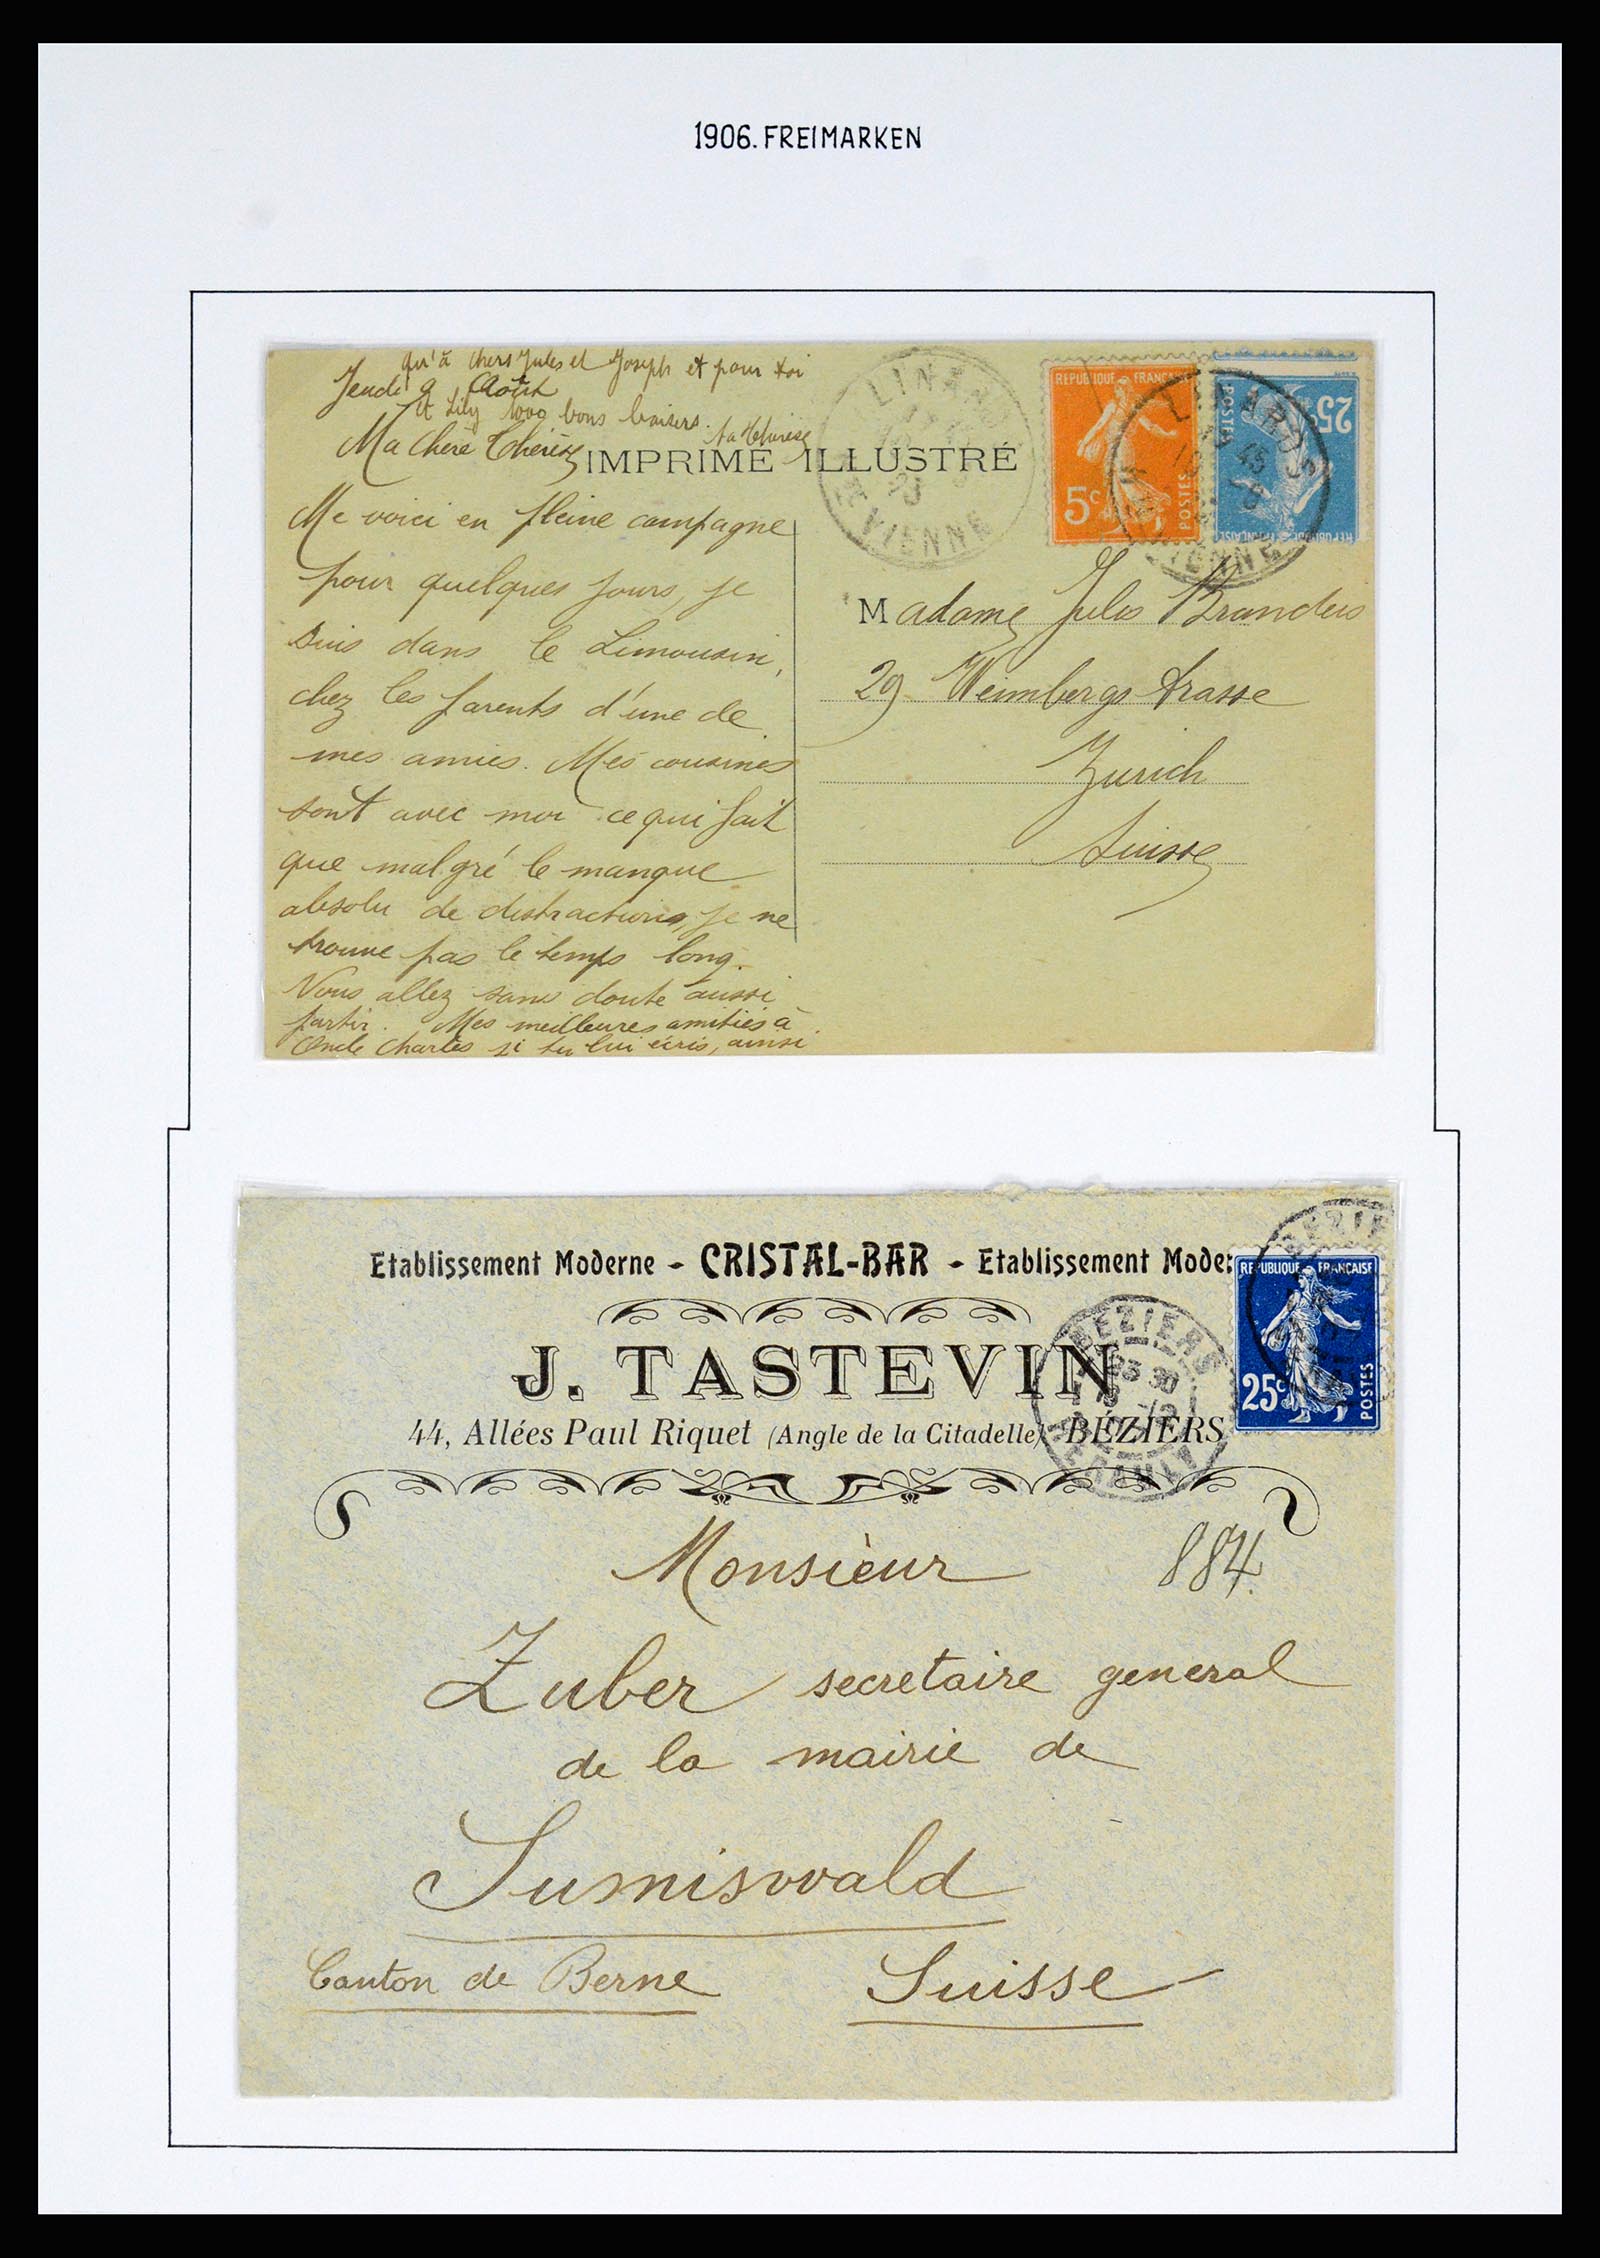 1906. FREIMARKEN
qu'à chers Jules et Joseph et pour toi
Jeudi 9 Août
et Lily 1000 bons baisers.
ta Thérèse
Ma chère Thérèse
IMPRIMÉ ILLUSTRÉ
LINARDS
VIENNE
REPUBLIQUE FRANÇAISE
5c
POSTES
REPUBLIQUE FRANÇAISE
25c
POSTES
LINARDS
45
VIENNE
Me voici en pleine campagne
pour quelques jours, je
suis dans le Limousin,
chez les parents d'une de
mes amies. Mes cousines
sont avec moi ce qui fait
que malgré le manque
absolu de distractions, je ne
trouve pas le temps long.
Nous allez sans doute aussi
partir. Mes meilleures amitiés à
Oncle Charles si tu lui écris, ainsi
Madame Jules Brandeis
29 Weinbergstrasse
Zurich
Suisse
Etablissement Moderne - CRISTAL-BAR - Etablissement Moder
J. TASTEVIN
44, Allées Paul Riquet (Angle de la Citadelle) BÉZIERS
BEZIERS
HERAULT
BEZIERS
REPUBLIQUE FRANÇAISE
25c
POSTES
Monsieur
884.
Zuber secretaire general
de la mairie de
Sumiswald
Canton de Berne Suisse